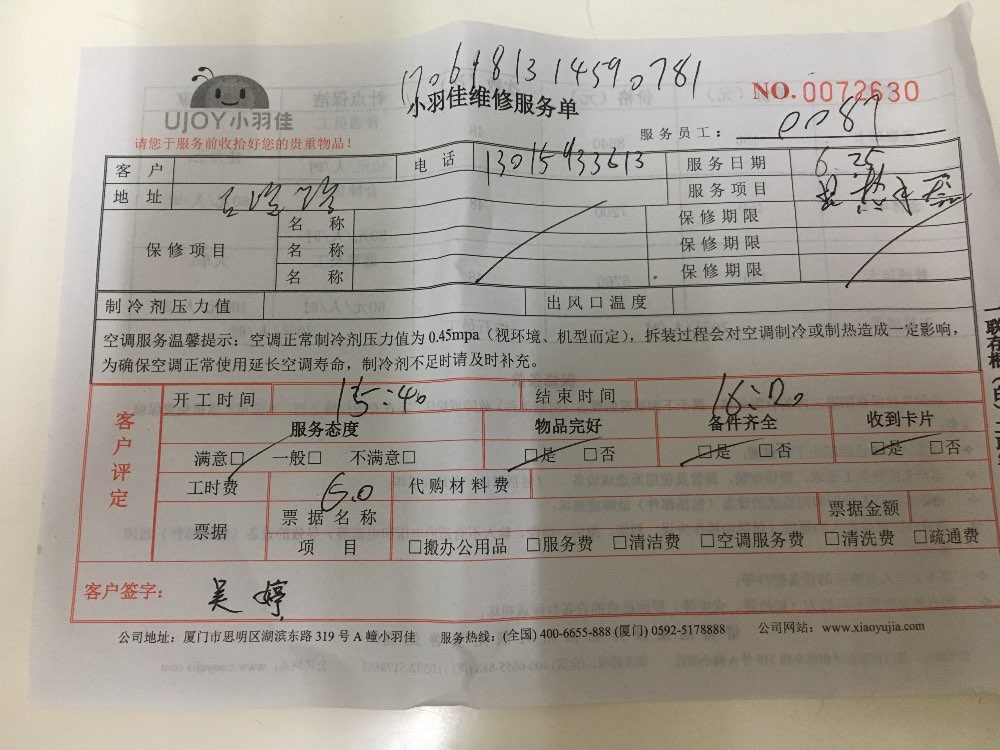 1706481314590781
小羽佳维修服务单
NO. 0072630
UJOY小羽佳
服务员工： 0087
请您于服务前收拾好您的贵重物品！
客 户 电 话 13015933613 服务日期 6.25
地 址 服务项目
保修项目 名 称 保修期限
名 称 保修期限
名 称 保修期限
制冷剂压力值 出风口温度
空调服务温馨提示：空调正常制冷剂压力值为 0.45mpa（视环境、机型而定），拆装过程会对空调制冷或制热造成一定影响，
为确保空调正常使用延长空调寿命，制冷剂不足时请及时补充。
客户评定
开工时间 15:40 结束时间 16:20
服务态度 物品完好 备件齐全 收到卡片
满意□ 一般□ 不满意□ □是 □否 □是 □否 □是 □否
工时费 60 代购材料费
票据 票据名称 票据金额
项 目 □搬办公用品 □服务费 □清洁费 □空调服务费 □清洗费 □疏通费
客户签字： 吴婷
公司地址：厦门市思明区湖滨东路 319 号 A 幢小羽佳 服务热线：(全国) 400-6655-888 (厦门) 0592-5178888 公司网站：www.xiaoyujia.com